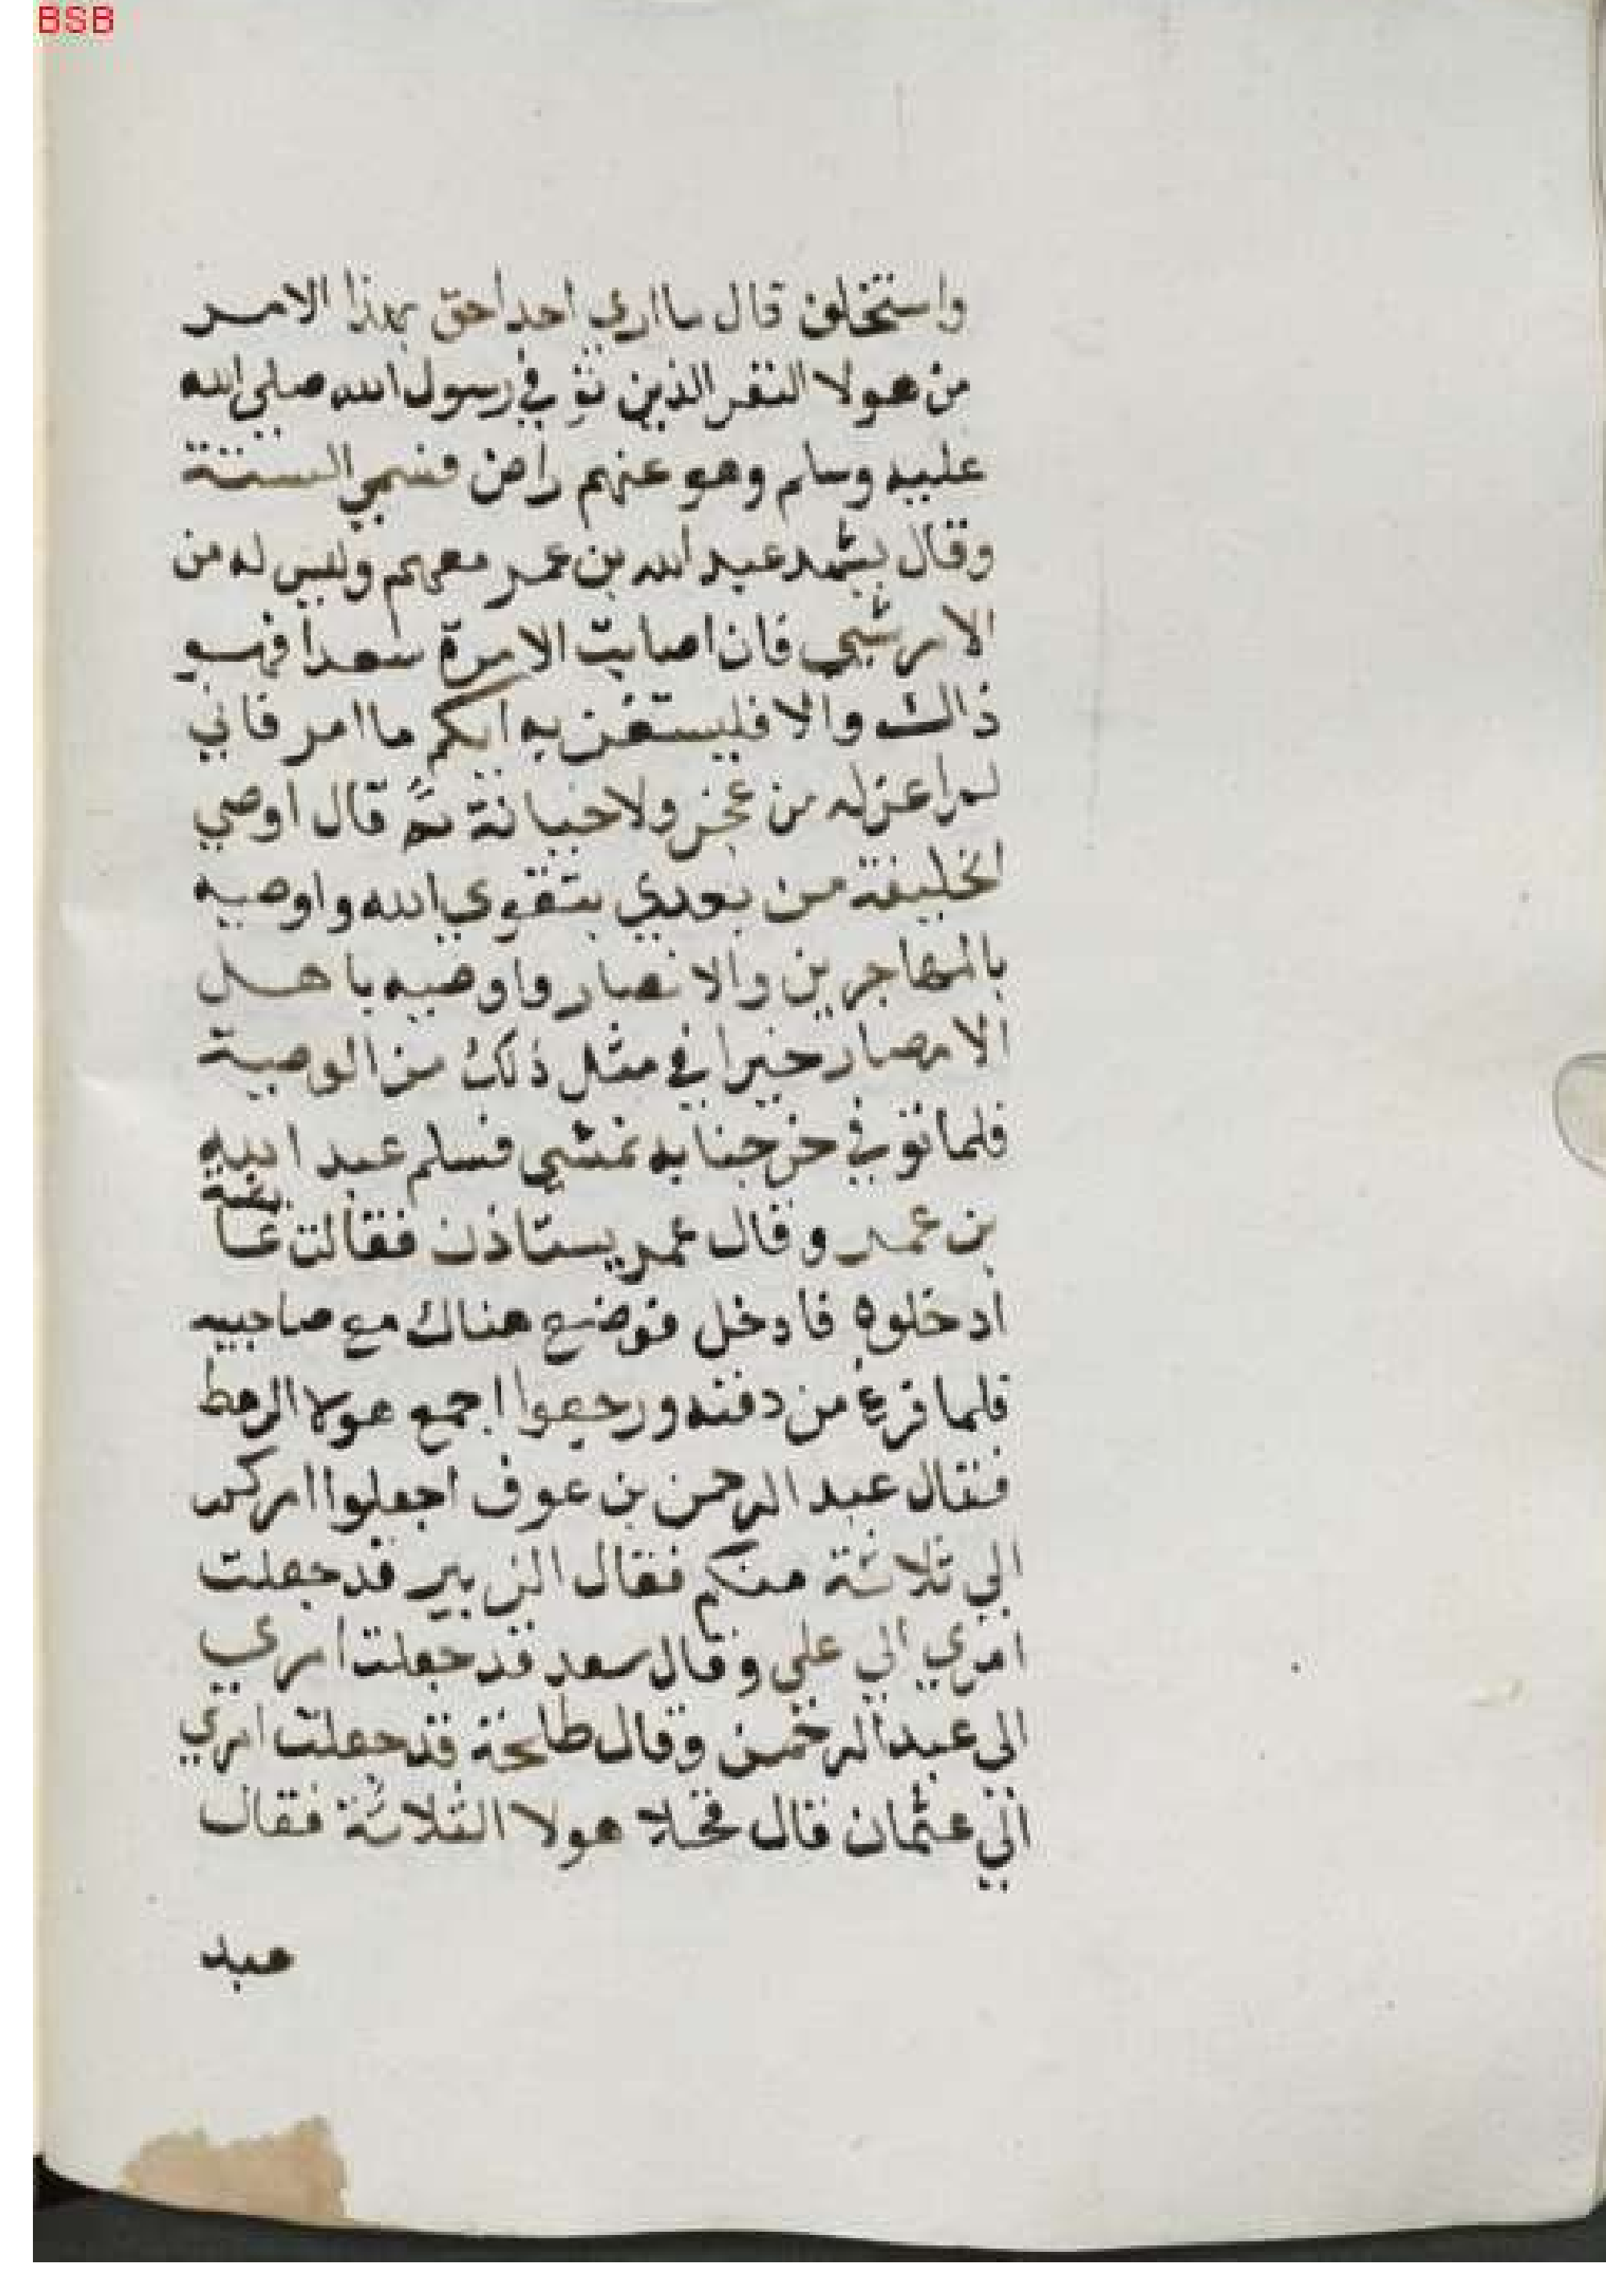 BSB
واستخلف قال ماارى احدا احق بهذا الامر
من هولا النفر الذين توفي رسول الله صلي الله
عليه وسلم وهو عنهم راض فسمي الستة
وقال يشهد عبد الله بن عمر معهم وليس له من
الامر شي فان اصابت الامرة سعدا فهو
ذالك والا فليستعن به ايكم ما امر فاني
لم اعزله من عجز ولا خيانة ثم قال اوصي
الخليفة من بعدي بتقوي الله واوصيه
بالمهاجرين والانصار واوصيه باهل
الامصار خيرا في مثل ذلك من الوصية
فلما توفي خرجنا به نمشي فسلم عبد الله
بن عمر وقال عمر يستاذن فقالت عايشة
ادخلوه فادخل فوضع هناك مع صاحبيه
فلما فرغ من دفنه ورجعوا اجمع هولا الرهط
فقال عبد الرحمن بن عوف اجعلوا امركم
الي ثلاثة منكم فقال الزبير قد جعلت
امري الي علي وقال سعد قد جعلت امري
الى عبد الرحمن وقال طلحة قد جعلت امري
الي عثمان قال فخلا هولا الثلاثة فقال
عبد